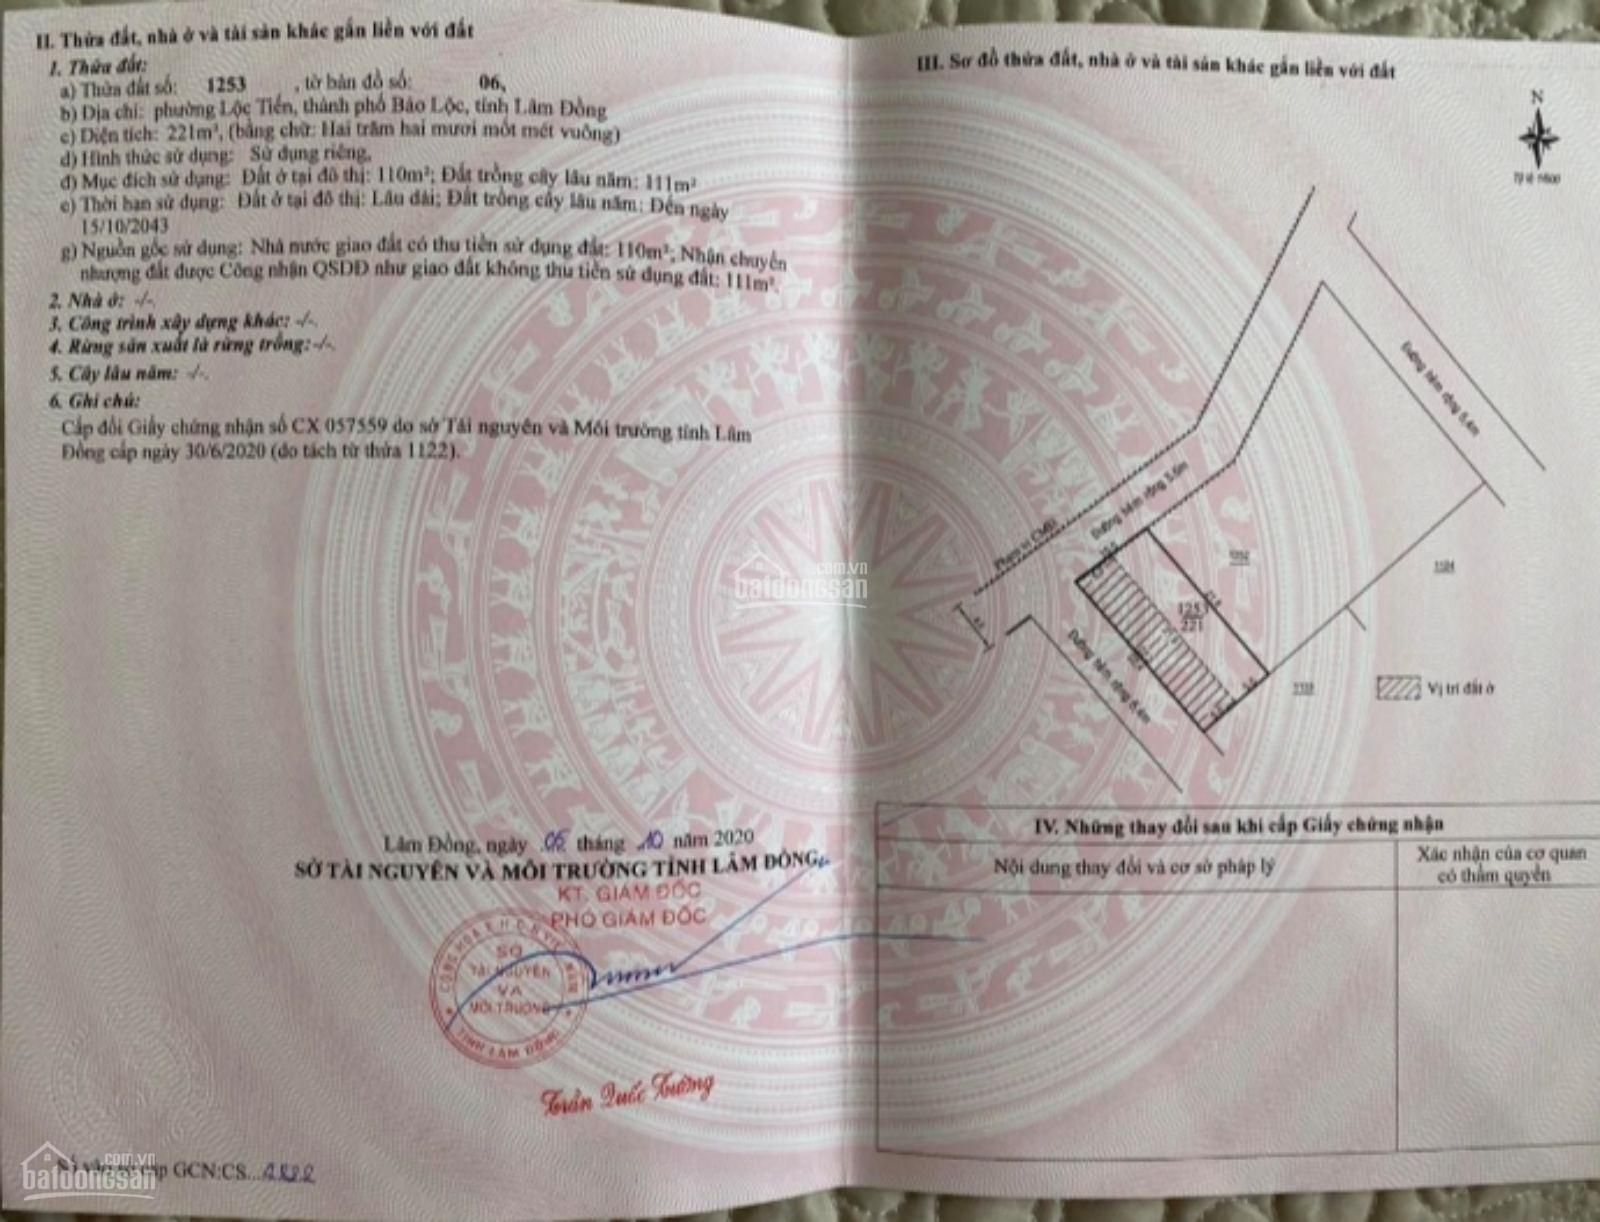 II. Thửa đất, nhà ở và tài sản khác gắn liền với đất
1. Thửa đất:
a) Thửa đất số: 1253 , tờ bản đồ số: 06,
b) Địa chỉ: phường Lộc Tiến, thành phố Bảo Lộc, tỉnh Lâm Đồng
c) Diện tích: 221m², (bằng chữ: Hai trăm hai mươi mốt mét vuông)
d) Hình thức sử dụng: Sử dụng riêng,
đ) Mục đích sử dụng: Đất ở tại đô thị: 110m²; Đất trồng cây lâu năm: 111m²
e) Thời hạn sử dụng: Đất ở tại đô thị: Lâu dài; Đất trồng cây lâu năm: Đến ngày
15/10/2043
g) Nguồn gốc sử dụng: Nhà nước giao đất có thu tiền sử dụng đất: 110m²; Nhận chuyển
nhượng đất được Công nhận QSDĐ như giao đất không thu tiền sử dụng đất: 111m².
2. Nhà ở: -/-.
3. Công trình xây dựng khác: -/-.
4. Rừng sản xuất là rừng trồng: -/-.
5. Cây lâu năm: -/-.
6. Ghi chú:
Cấp đổi Giấy chứng nhận số CX 057559 do sở Tài nguyên và Môi trường tỉnh Lâm
Đồng cấp ngày 30/6/2020 (do tách từ thửa 1122).
Lâm Đồng, ngày 05 tháng 10 năm 2020
SỞ TÀI NGUYÊN VÀ MÔI TRƯỜNG TỈNH LÂM ĐỒNG
KT. GIÁM ĐỐC
PHÓ GIÁM ĐỐC
SỞ
TÀI NGUYÊN
VÀ
MÔI TRƯỜNG
TỈNH LÂM ĐỒNG
Trần Quốc Tường
cấp GCN:CS...
batdongsan.com.vn
III. Sơ đồ thửa đất, nhà ở và tài sản khác gắn liền với đất
N
Đường hẻm rộng 6,4m
Đường hẻm rộng 5.0m
Phạm vi CMĐ
1253
221
Đường hẻm rộng 6,4m
Vị trí đất ở
batdongsan.com.vn
IV. Những thay đổi sau khi cấp Giấy chứng nhận
Nội dung thay đổi và cơ sở pháp lý
Xác nhận của cơ quan
có thẩm quyền